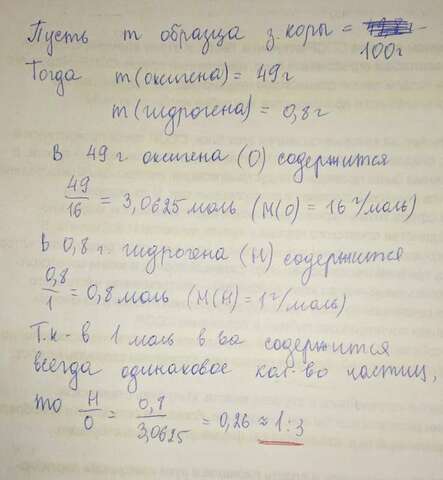 Пусть m образца з. коры =
100г
Тогда m(оксигена) = 49г
m(гидрогена) = 0,8г
В 49 г оксигена (О) содержится
49/16 = 3,0625 моль (M(O) = 16 г/моль)
В 0,8 г. гидрогена (H) содержится
0,8/1 = 0,8 моль (M(H) = 1 г/моль)
Т.к. в 1 моль в-ва содержится
всегда одинаковое кол-во частиц,
то H/O = 0,8/3,0625 = 0,26 ≈ 1:3